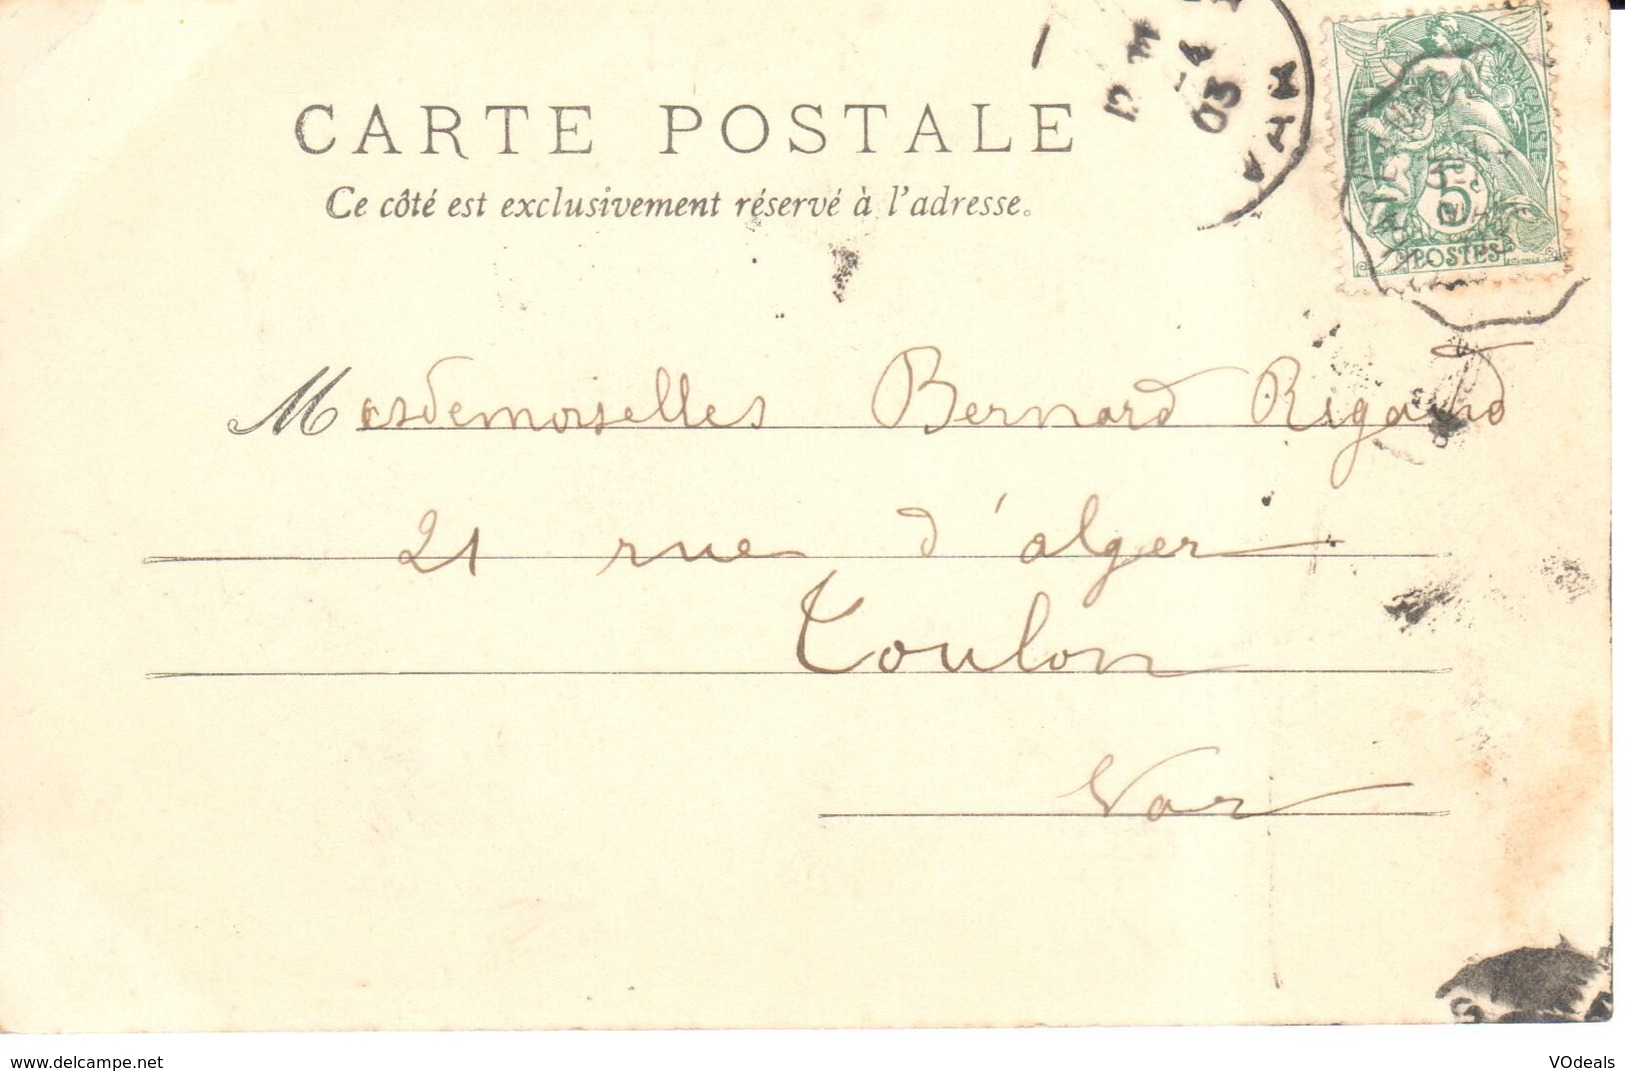 CARTE POSTALE
Ce côté est exclusivement réservé à l'adresse.
12
4
03
VAR
5
POSTES
Mesdemoiselles Bernard Rigaud
21 rue d'alger
Toulon
Var
www.delcampe.net
VOdeals